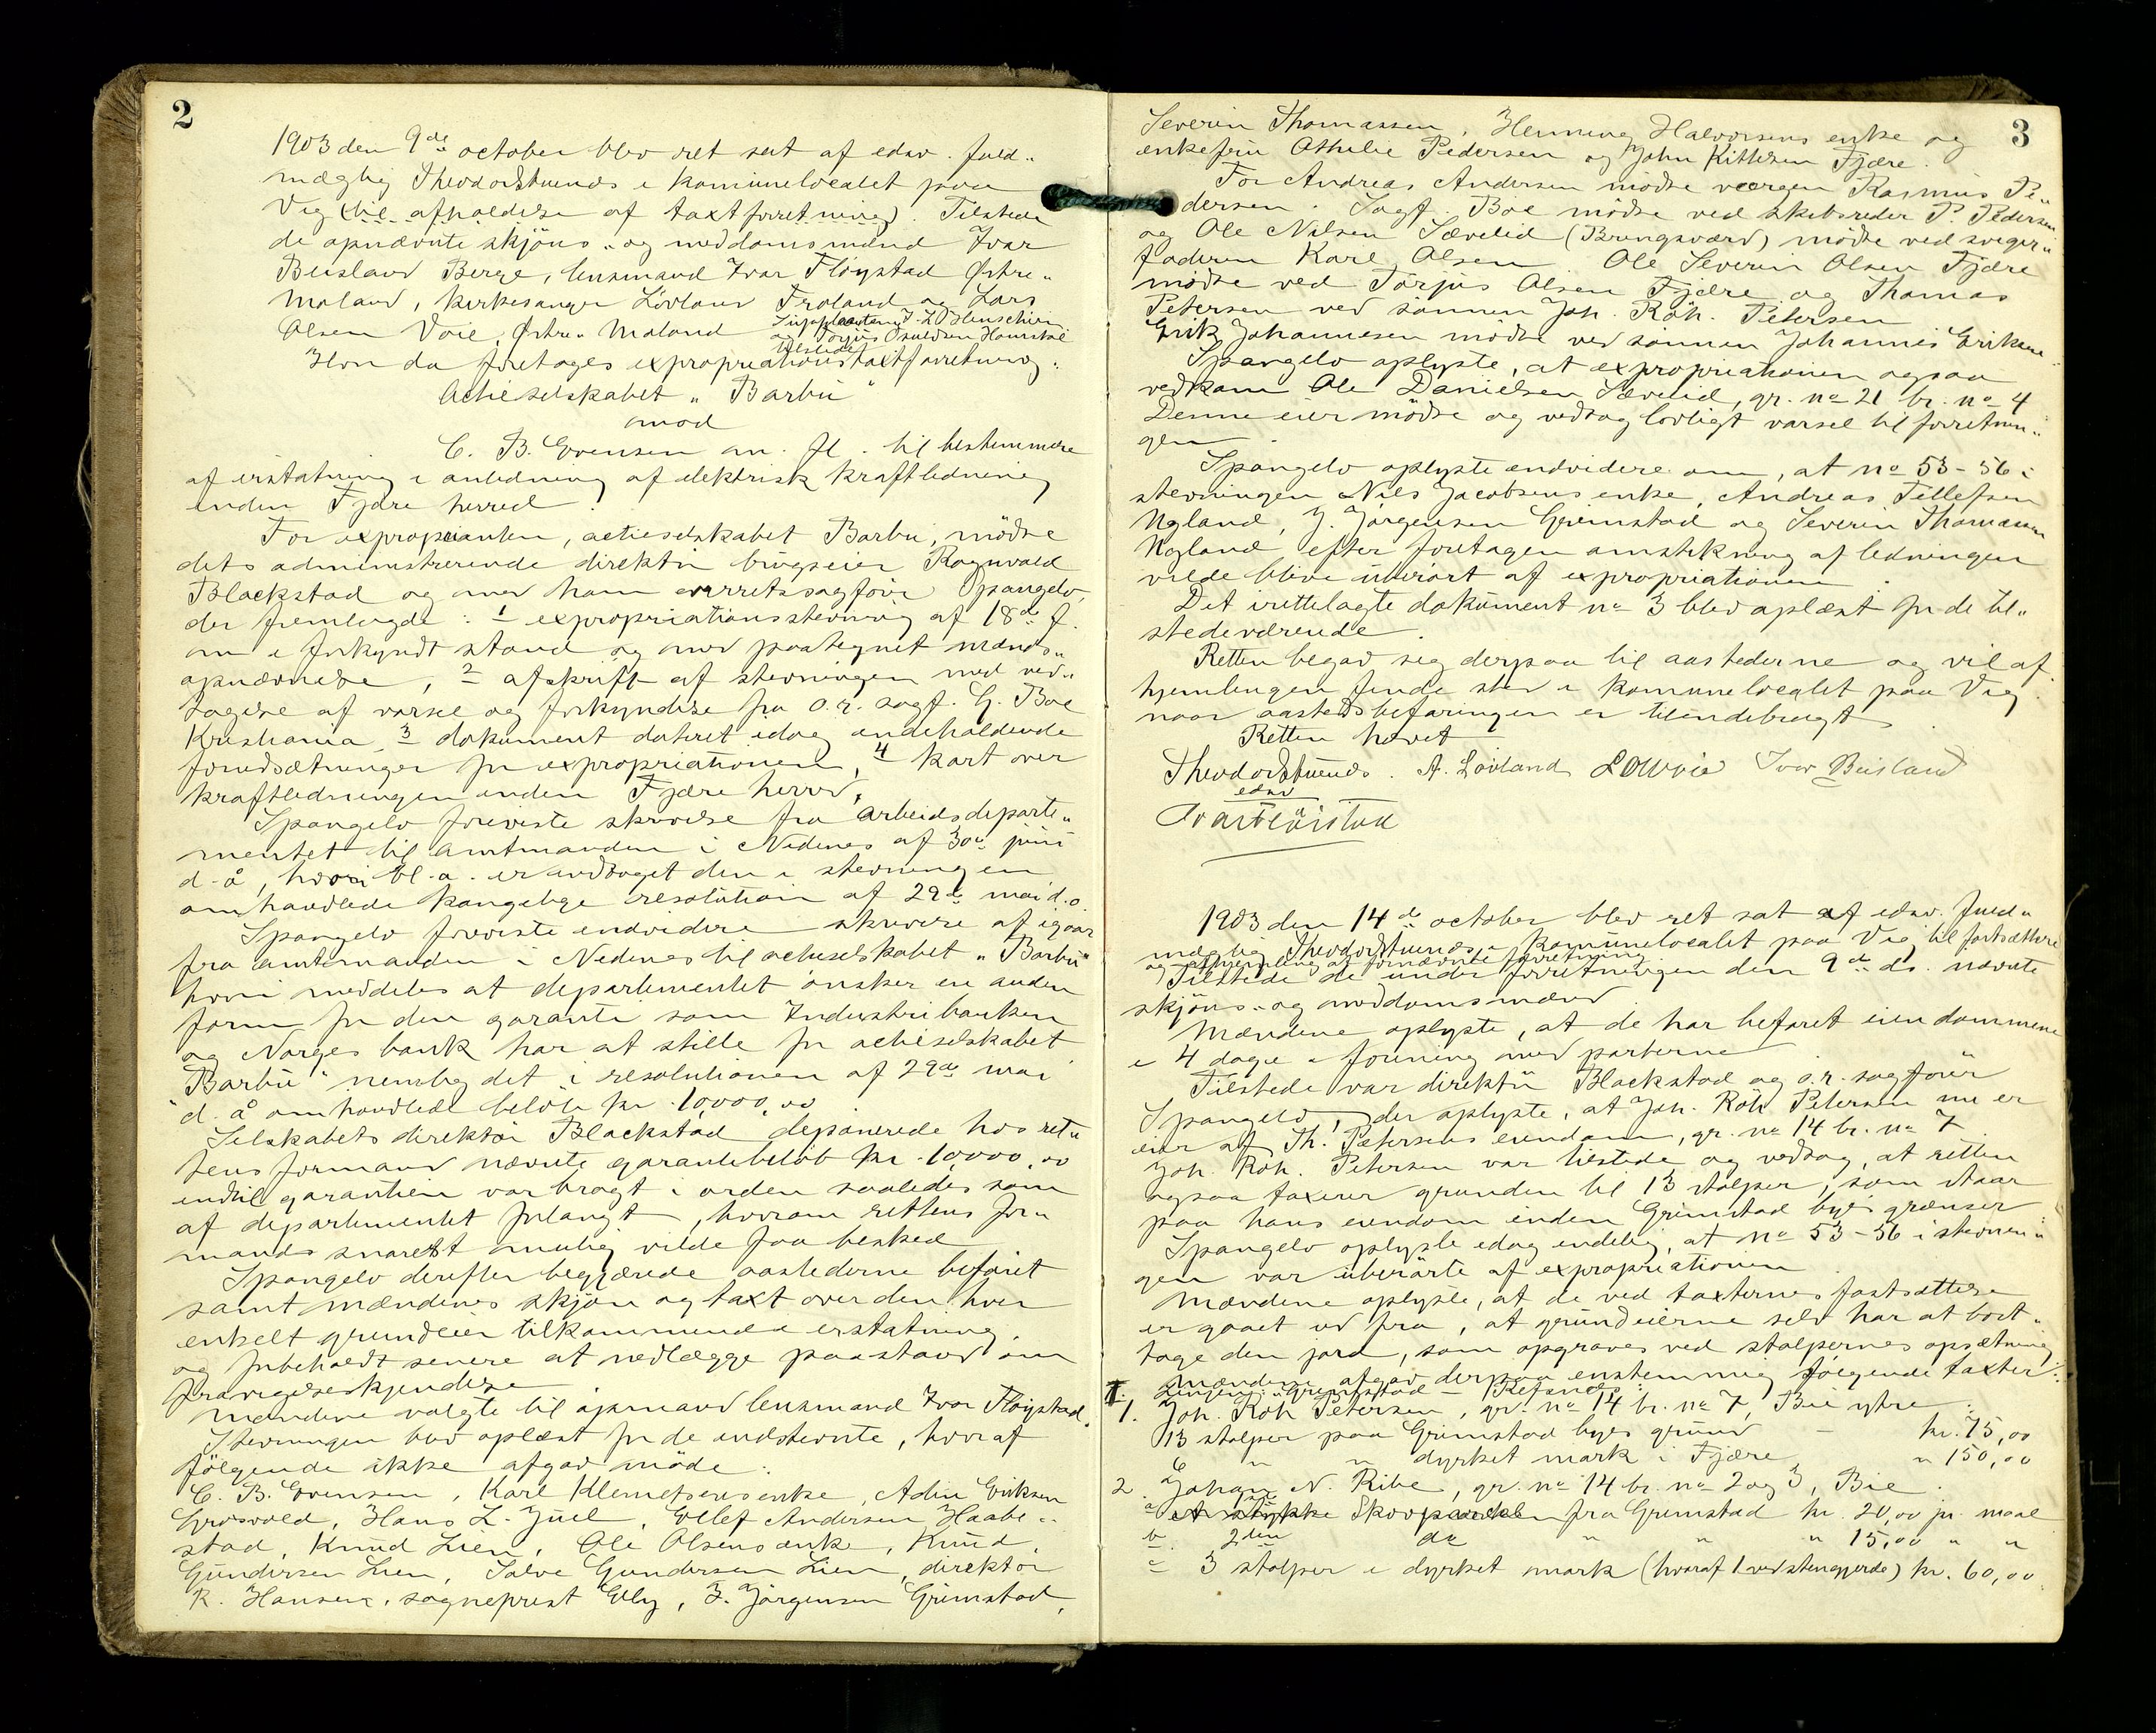 2
1903 den 9de october blev ret sat af edsv. fuld„
mægtig Theodor Stuenes i komunelocalet paa
Vig (til afholdelse af taxtforretning). Tilstede
de opnævnte skjöns„ og meddomsmænd Ivar
Beisland Berge, lensmand Ivar Flöystad Østre„
Moland, kirkesanger Lövland Froland og Lars
Olsen Voie, Østre„ Moland Suppleanterne
og Torjus Osuldsen
tilstede
Hvor da foretoges expropriationstaxtforretning:
Actieselskabet „Barbu"
mod
C. B. Evensen m. fl. til bestemmelse
af erstatning i anledning af elektrisk kraftledning
inden Fjære herred.
For exproprianten, actieselskabet Barbu, mödte
dets administrerende direktör brugseier Ragnvald
Blackstad og med ham overretssagförer Spangelo,
der fremlagde: 1 expropriationsstevning af 18de f.
m i forkyndt stand og med paategnet mænds„
opnævnelse, 2 afskrift af stevningen med ved„
tagelse af varsel og forkyndelse fra o.r. sagf. G. Boe
Kristiania, 3 dokument dateret idag indeholdende
forudsætninger for expropriationen, 4 kart over
kraftledningen inden Fjære herred,
Spangelo foreviste skrivelse fra arbeidsdeparte„
mentet til amtmanden i Nedenes af 30te juni
d. å, hvori bl. a. er inddraget den i stevningen
omhandlede kongelige resolution af 29de mai d. å.
Spangelo foreviste endvidere skrivelse af igaar
fra amtmanden i Nedenes til actieselskabet „Barbu"
hvori meddeles at departementet ønsker en anden
form for den garanti som Industribanken
og Norges bank har at stille for actieselskabet
„Barbu" nemlig det i resolutionen af 29de mai
d. å omhandlede beløb kr. 10,000,00
Selskabets direktör Blackstad deponerede hos ret„
tens formand nævnte garantibelöb kr. 10,000,00
indtil garantien var bragt i orden saaledes som
af departementet forlangt, hvorom rettens for„
mand snarest mulig vilde faa besked
Spangelo derefter begjærede aastederne befaret
samt mændenes skjön og taxt over den hver
enkelt grundeier tilkommende erstatning.
og forbeholdt senere at nedlægge paastand om
fravigelseskjendelse
Mændene valgte til opmand lensmand Ivar Flöystad.
Stevningen blev oplæst for de indstevnte, hvoraf
fölgende ikke afgav möde:
C. B. Evensen, Karl Klemetsens enke, Adin Eriksen
Grosvold, Hans L. Juel, Ellef Andersen Haabe„
stad, Knud Lien, Ole Olsens enke, Knud
Gundersen Lien, Salve Gundersen Lien, direktör
R. Hansen, sogneprest Elby, J. Jörgensen Grimstad,
3
Severin Thomassen, Henning Halvorsens enke og
enkefru Othelie Pedersen og John Kittelsen Fjære.
For Andreas Andersen mödte værgen Rasmus Pe„
dersen. Sagf. Boe mödte ved skibsreder P. Pedersen
og Ole Nilsen Sævelid (Bringsværd) mödte ved sviger„
faderen Karl Olsen Ole Severin Olsen Fjære
mödte ved Torjus Olsen Fjære og Thomas
Petersen ved sönnen Joh. Röh. Petersen
Erik Johannesen mödte ved sönnen Johannes Eriksen.
Spangelo oplyste, at expropriationen ogsaa
vedkom Ole Danielsen Sævelid, gr. no 21 br. no 4
Denne eier mödte og vedtog lovligt varsel til forretnin„
gen.
Spangelo oplyste endvidere om, at no 53-56 i
stevningen Nils Jacobsens enke, Andreas Tellefsen
Ugland, J. Jörgensen Grimstad og Severin Thomassen
Ugland efter foretagen omstikning af ledningen
vilde blive uberört af expropriationen
Det irettelagte dokument no 3 blev oplæst for de til„
stedeværende.
Retten begav seg derpaa til aastederne og vil af
hjemlingen finde sted i komunelocalet paa Vig
naar aastedsbefaringen er tilendebragt
Retten hævet
Theodor Stuenes. A. Lövland L O Woie Ivar Beisland
edsv
Ivar Flöistad
1903 den 14de october blev ret sat af edsv. fuld„
mægtig Theodor Stuenes i komunelocalet paa Vig til fortsættelse
og afhjemling af fornævnte forretning
Tilstede de under forretningen den 9de ds. nævnte
skjöns„ og meddomsmænd
Mændene oplyste, at de har befaret eiendommene
i 4 dage i forening med parterne
Tilstede var direktör Blackstad og o.r. sagförer
Spangelo, der oplyste, at Joh. Röh. Petersen nu er
eier af Th. Petersens eiendom, gr. no 14 br. no 7
Joh. Röh. Petersen var tilstede og vedtog, at retten
ogsaa taxerer grunden til 13 stolper, som staar
paa hans eiendom inden Grimstad byes grænser
Spangelo oplyste idag endelig, at no 53-56 i stevnin„
gen var uberörte af expropriationen
Mændene oplyste, at de ved taxternes fastsættelse
er gaaet ud fra, at grundeierne selv har at bort„
tage den jord, som opgraves ved stolpernes opsætning
Mændene afgav derpaa enstemmig fölgende taxter:
I. Linjen: Grimstad - Refanes:
1. Joh. Röh Petersen, gr. no 14 br. no 7, Bie ytre:
13 stolper paa Grimstad byes grund - kr. 75,00
6 " " dyrket mark i Fjære " 150,00
2. Johan N. Ribe, gr. no 14 br. no 2 og 3, Bie.
a Skov fra Grimstad kr. 20,00 pr. maal
b. 2den do " " " 15,00 " "
c 3 stolper i dyrket mark (hvoraf 1 ved stengjerde) kr. 60,00